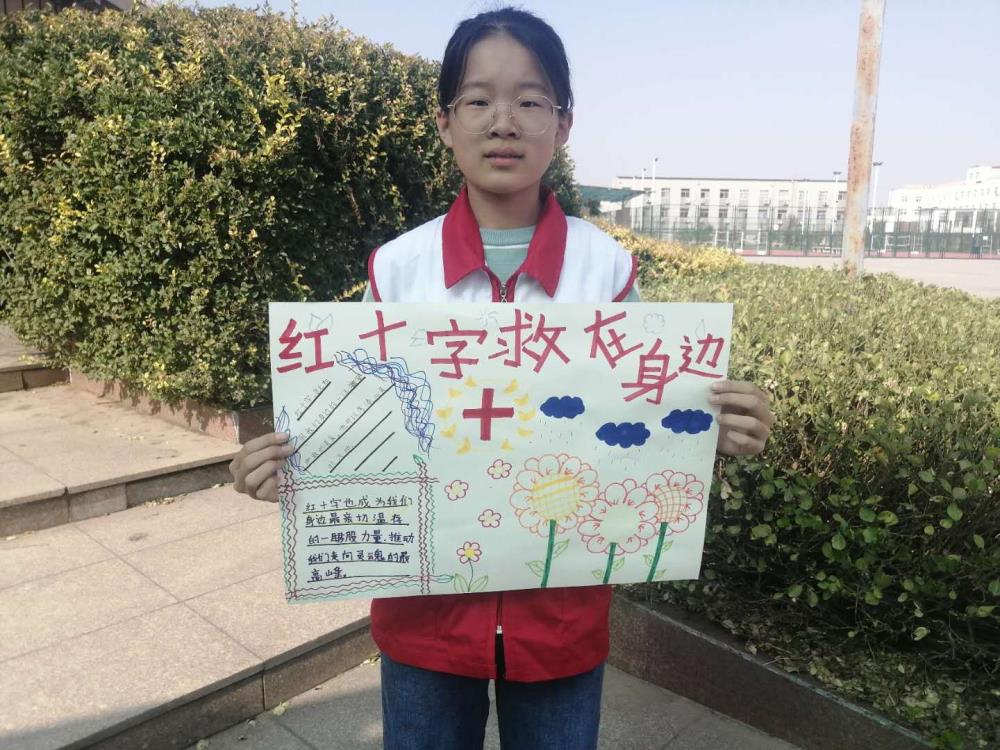 红十字救在身边
红十字也成为我们
身边最亲切温存
的一股力量,推动
我们走向灵魂的最
高峰。